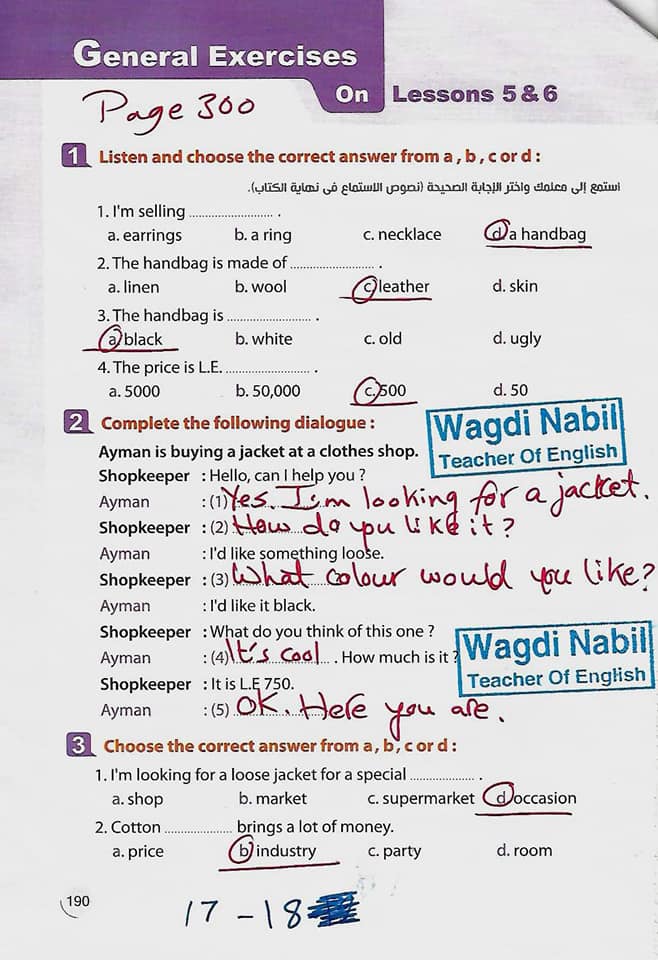 General Exercises
On Lessons 5 & 6
Page 300
1 Listen and choose the correct answer from a , b , c or d :
استمع إلى معلمك واختر الإجابة الصحيحة (نصوص الاستماع فى نهاية الكتاب).
1. I'm selling ........................ .
a. earrings b. a ring c. necklace d. a handbag
2. The handbag is made of ........................ .
a. linen b. wool c. leather d. skin
3. The handbag is ........................ .
a. black b. white c. old d. ugly
4. The price is L.E. ........................ .
a. 5000 b. 50,000 c. 500 d. 50
2 Complete the following dialogue :
Wagdi Nabil
Teacher Of English
Ayman is buying a jacket at a clothes shop.
Shopkeeper : Hello, can I help you ?
Ayman : (1) Yes. I'm looking for a jacket.
Shopkeeper : (2) How do you like it?
Ayman : I'd like something loose.
Shopkeeper : (3) What colour would you like?
Ayman : I'd like it black.
Shopkeeper : What do you think of this one ?
Ayman : (4) It's cool . How much is it ?
Wagdi Nabil
Teacher Of English
Shopkeeper : It is L.E 750.
Ayman : (5) OK. Here you are.
3 Choose the correct answer from a , b , c or d :
1. I'm looking for a loose jacket for a special .................. .
a. shop b. market c. supermarket d. occasion
2. Cotton .................. brings a lot of money.
a. price b. industry c. party d. room
190
17 - 18